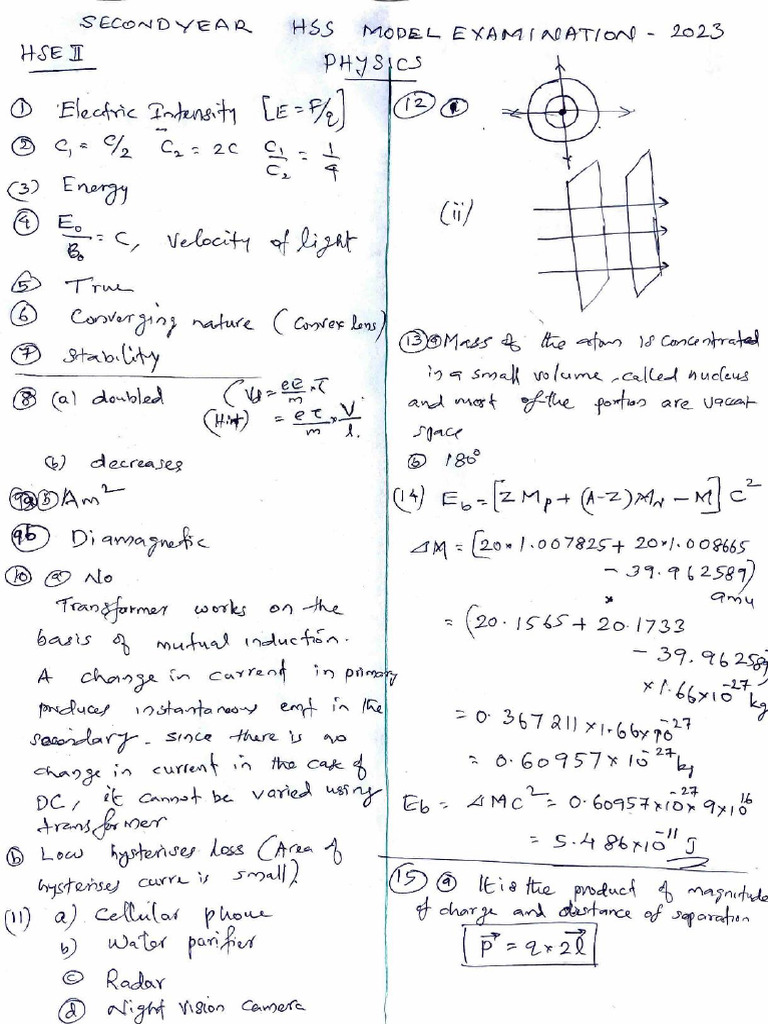 SECOND YEAR HSS MODEL EXAMINATION - 2023
HSE II
PHYSICS
① Electric Intensity [E = F/q]
② C₁ = C/2 C₂ = 2C C₁/C₂ = 1/4
(3) Energy
④ E₀/B₀ = C, velocity of light
⑤ True
⑥ Converging nature (convex lens)
⑦ stability
⑧ (a) doubled (Vd = eE/m × τ
(Hint) = eτ/m × V/l.
(b) decreases
9a Am²
9b Diamagnetic
⑩ ⓐ No
Transformer works on the
basis of mutual induction.
A change in current in primary
produces instantaneous emf in the
secondary. since there is no
change in current in the case of
DC, it cannot be varied using
transformer
ⓑ Low hysterises loss (Area of
hysterises curve is small).
(11) a) Cellular phone
b) Water purifier
ⓒ Radar
ⓓ Night vision camera
⑫ ⓘ
(ii)
⑬ ⓐ Mass of the atom is concentrated
in a small volume, called nucleus
and most of the portion are vacant
space
ⓑ 180°
(14) Eb = [Z Mp + (A-Z) MN - M] C²
ΔM = [20×1.007825 + 20×1.008665
- 39.962589)
× amu
= (20.1565 + 20.1733
- 39.962589)
×1.66×10⁻²⁷ kg
= 0.367211×1.66×10⁻²⁷
= 0.60957×10⁻²⁷ kg
Eb = ΔMC² = 0.60957×10⁻²⁷×9×10¹⁶
= 5.486×10⁻¹¹ J
⑮ ⓐ It is the product of magnitude
of charge and distance of separation
p⃗ = q × 2l⃗